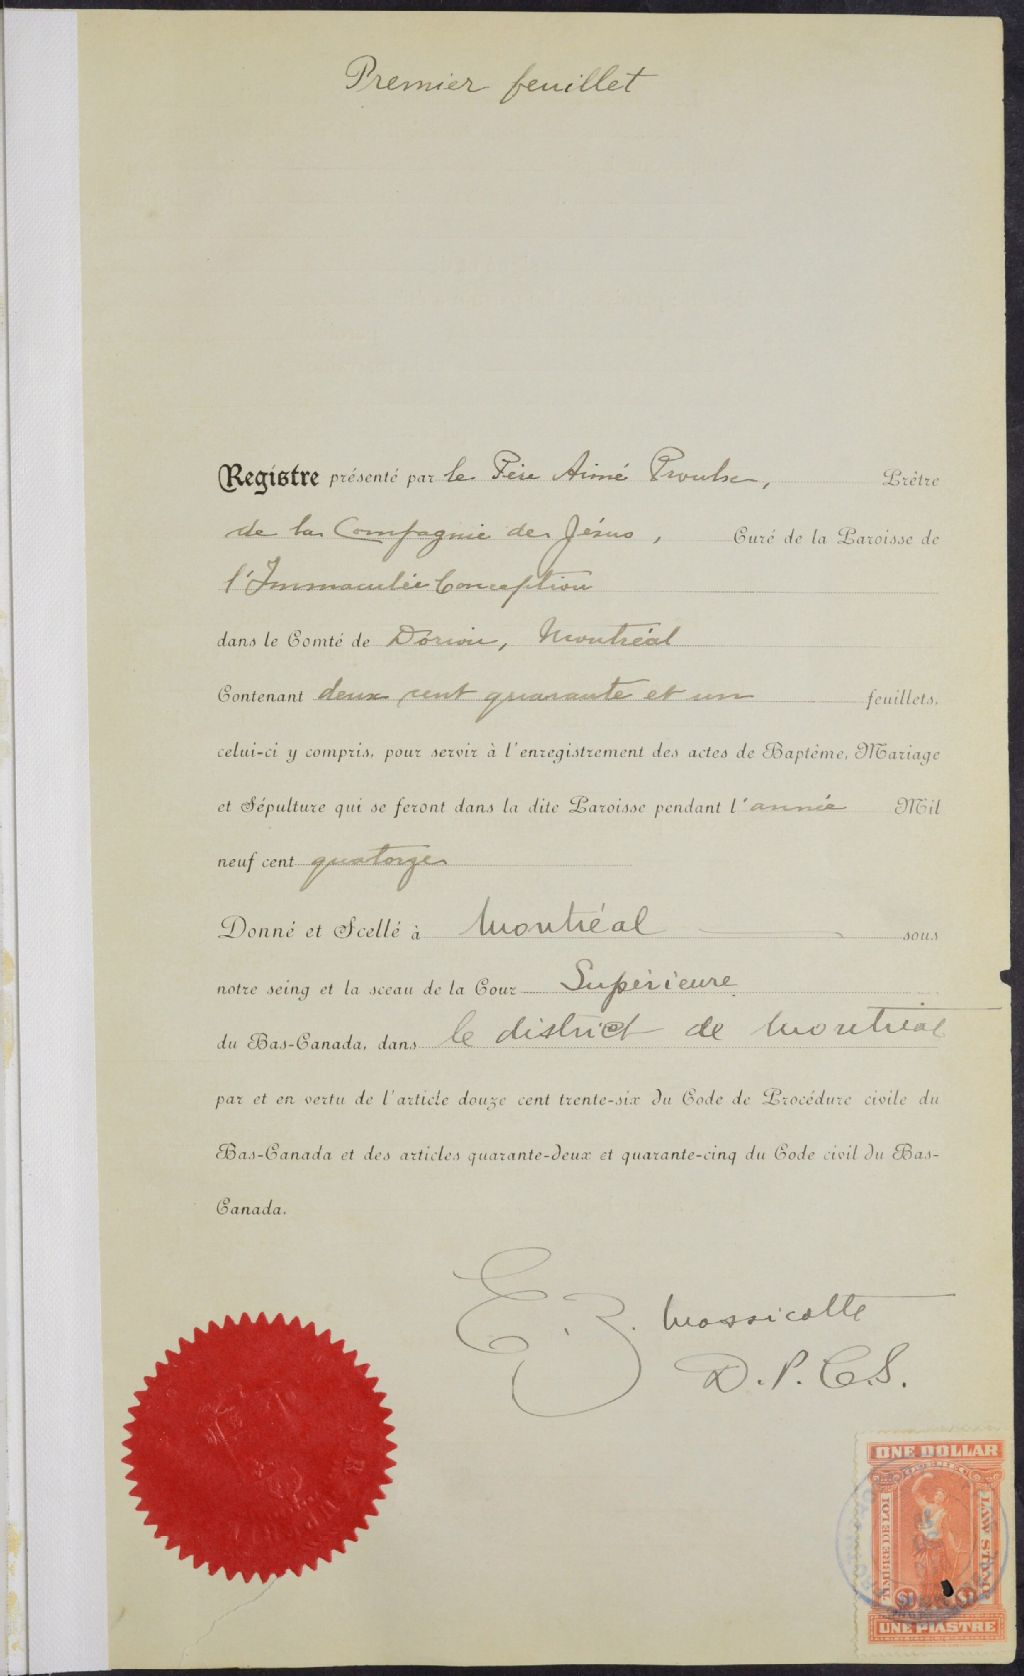 Premier feuillet
Registre présenté par le Père Aimé Proulx, Prêtre
de la Compagnie de Jésus, Curé de la Paroisse de
l'Immaculée Conception
dans le Comté de Dorion, Montréal
Contenant deux cent quarante et un feuillets,
celui-ci y compris, pour servir à l'enregistrement des actes de Baptême, Mariage
et Sépulture qui se feront dans la dite Paroisse pendant l'année Mil
neuf cent quatorze
Donné et Scellé à Montréal sous
notre seing et la sceau de la Cour Supérieure
du Bas-Canada, dans le district de Montréal
par et en vertu de l'article douze cent trente-six du Code de Procédure civile du
Bas-Canada et des articles quarante-deux et quarante-cinq du Code civil du Bas-
Canada.
E. Z. Massicotte
D. P. C. S.
ONE DOLLAR
TIMBRE DE LOI
LAW STAMP
$1 $1
UNE PIASTRE